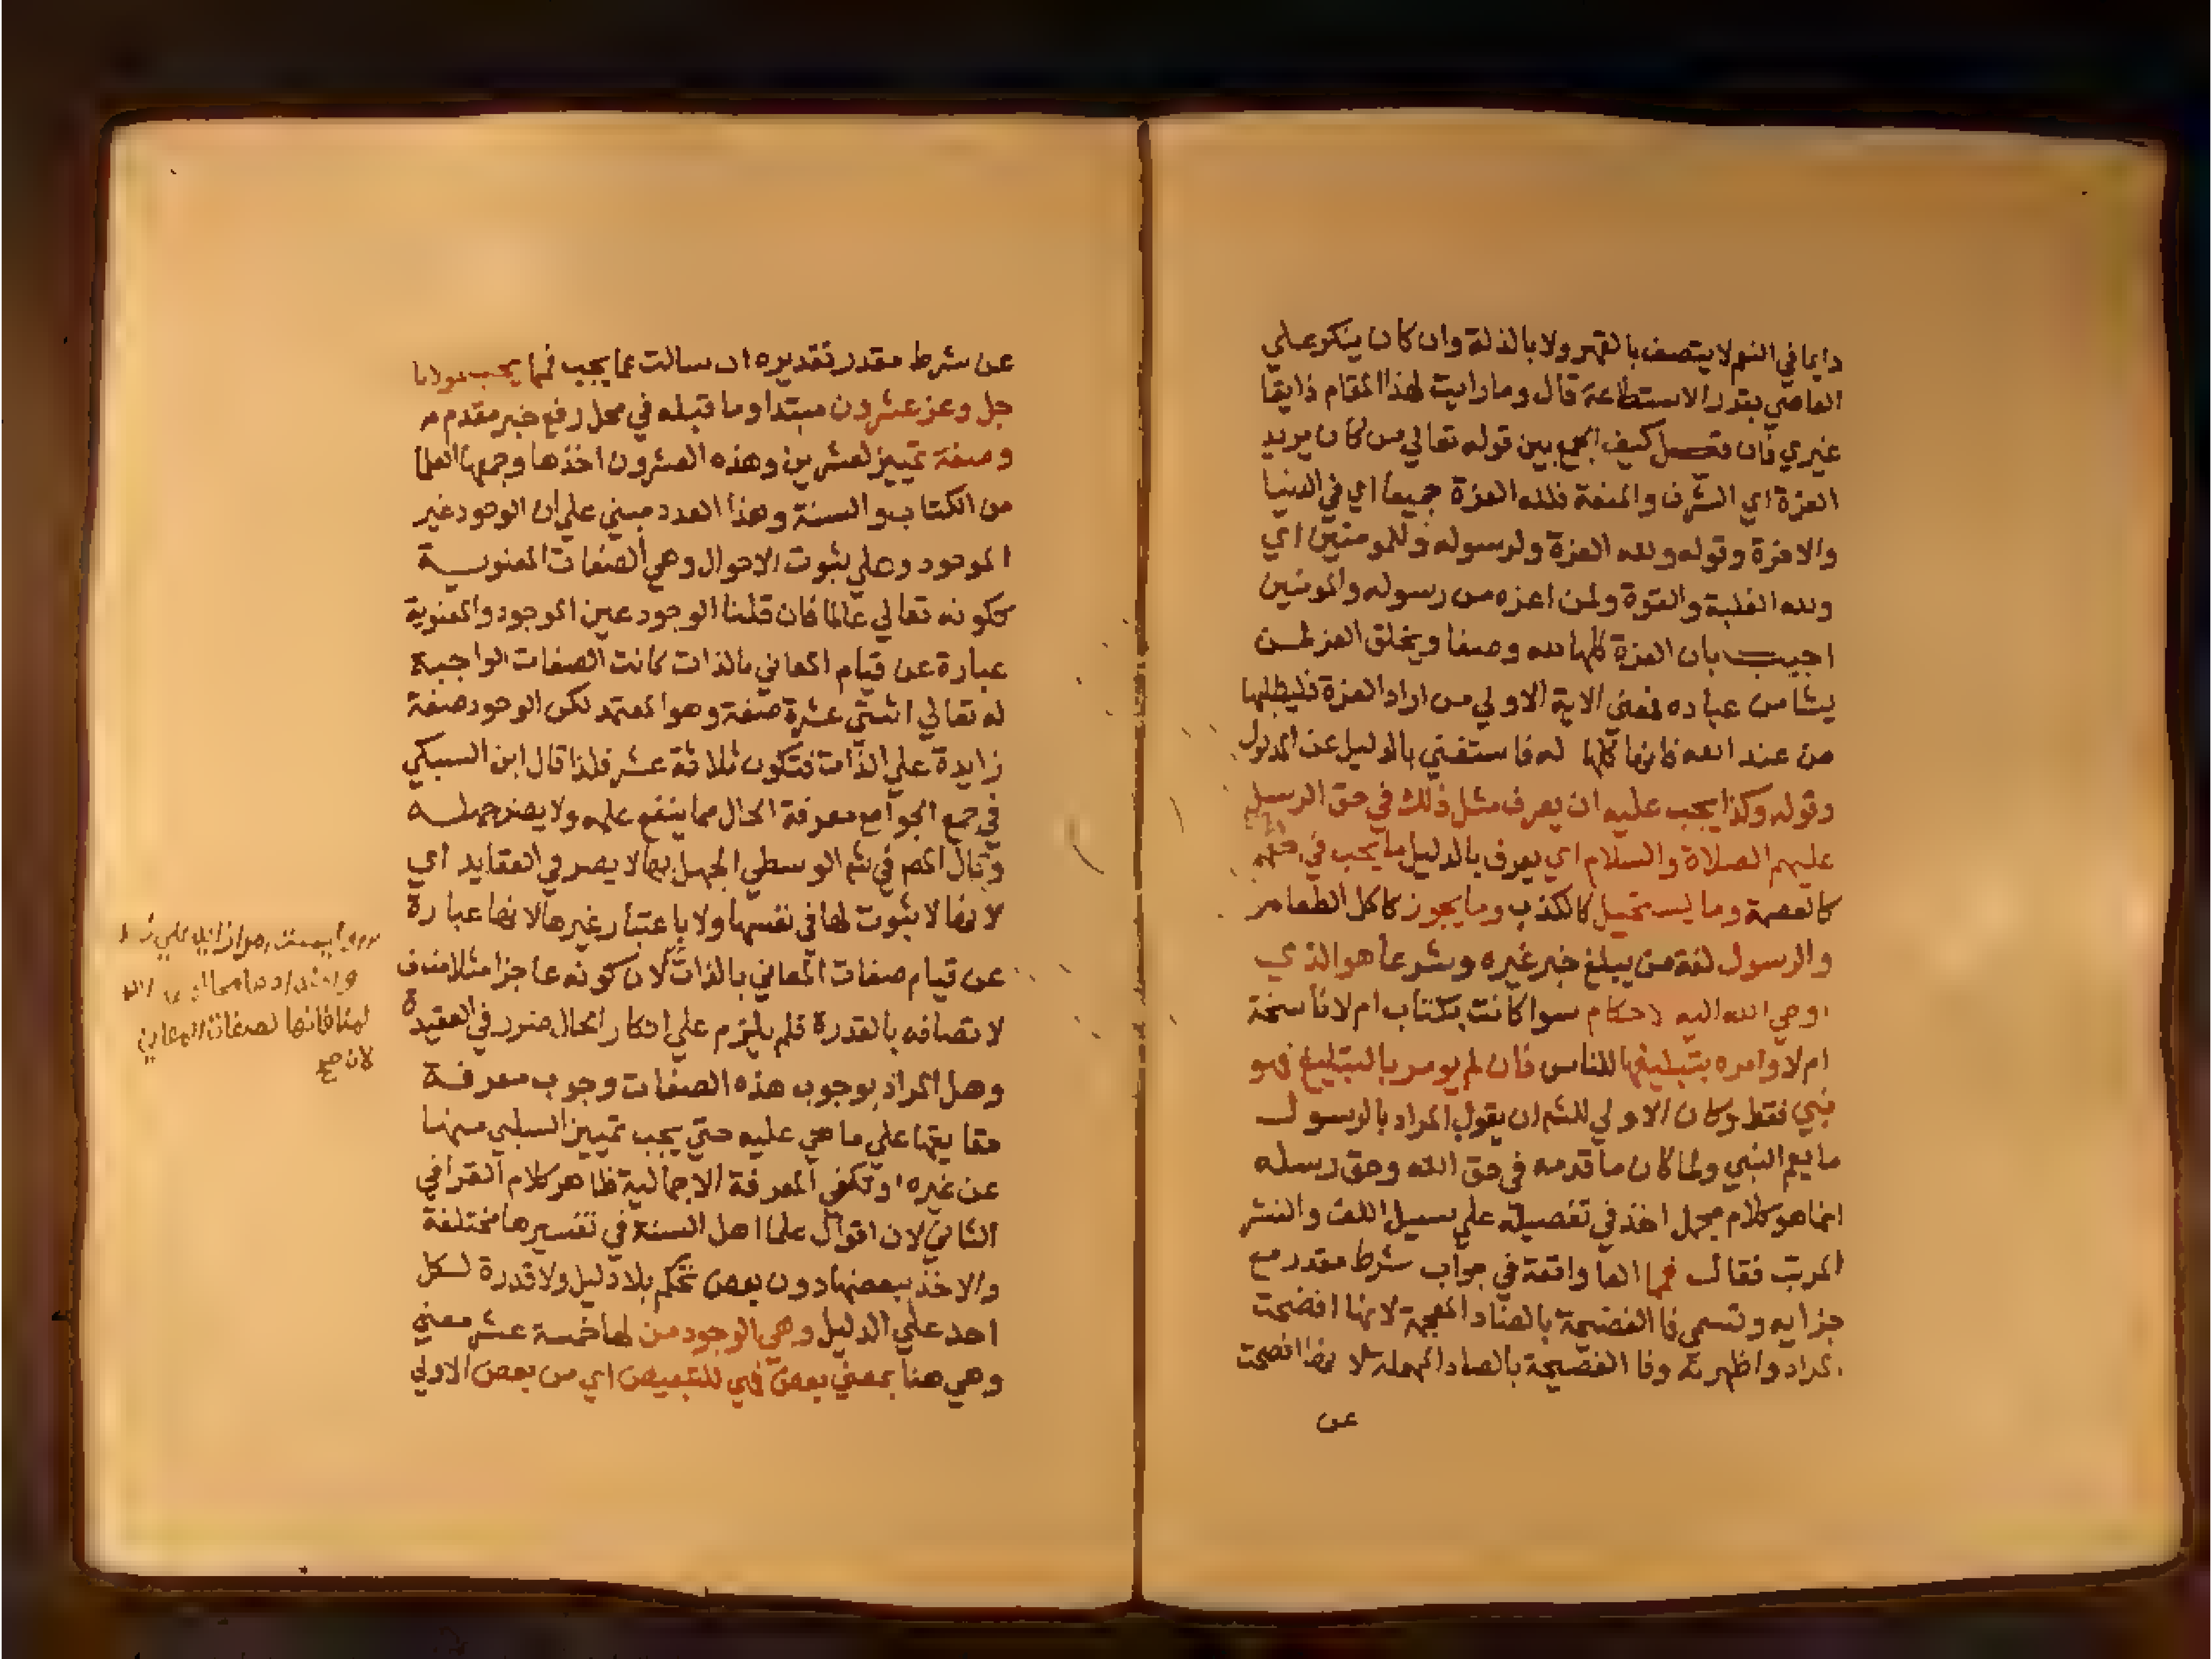 دايما في النهم لا يتصف بالقهر ولا بالذلة وان كان ينكر علي
العاصي بقدر الاستطاعة قال وما رايت لهذا المقام ذايقا
غيري فان قيل كيف الجمع بين قوله تعالي من كان يريد
العزة اي الشرف والمنعة فلله العزة جميعا اي في الدنيا
والاخرة وقوله ولله العزة ولرسوله وللمومنين اي
ولله الغلبة والقوة ولمن اعزه من رسوله والمومنين
اجيب بان العزة كلها لله وصفا ويخلق العز لمن
يشا من عباده فمعني الاية الاولي من اراد العزة فليطلبها
من عند الله فانها كلها له فاستغني بالدليل عن المدلول
وقوله وكذا يجب عليه ان يعرف مثل ذلك في حق الرسل
عليهم الصلاة والسلام اي يعرف بالدليل ما يجب في حقهم
كالعصمة وما يستحيل كالكذب وما يجوز كاكل الطعام
والرسول لغة من يبلغ خبر غيره وشرعا هو الذي
اوحي الله اليه لاحكام سوا كانت بكتاب ام لا ناسخة
ام لا وامره بتبليغها للناس فان لم يومر بالتبليغ فهو
نبي فقط وكان الاولي للشم ان يقول المراد بالرسول
ما يعم النبي ولما كان ما قدمه في حق الله وحق رسله
انما هو كلام مجمل اخذ في تفصيله علي سبيل اللف والنشر
المرتب فقال فما الفا واقعة في جواب شرط مقدر مع
جزايه وتسمي فا الفضيحة بالضاد المعجمة لانها افضحت
المراد واظهرته وفا الفصيحة بالصاد المهملة لانها افصحت
عن
عن شرط مقدر تقديره ان سالت عما يجب فما يجب لمولانا
جل وعز عشرون مبتدا وما قبله في محل رفع خبر مقدم
وصفة تمييز لعشرين وهذه العشرون اخذها وجمعها العلما
من الكتاب والسنة وهذا العدد مبني علي ان الوجود غير
الموجود وعلي ثبوت الاحوال وهي الصفات المعنوية
ككونه تعالي عالما فان قلنا الوجود عين الموجود والمعنوية
عبارة عن قيام المعاني بالذات كانت الصفات الواجبة
له تعالي اثنتي عشرة صفة وهو المعتمد لكن الوجود صفة
زايدة علي الذات فتكون ثلاثة عشر فلذا قال ابن السبكي
في جمع الجوامع معرفة الحال مما ينفع علمه ولا يضر جهله
وقال المص في شم الوسطي الجهل بها لا يضر في العقايد اي
لانها لا ثبوت لها في نفسها ولا باعتبار غيرها لانها عبارة
عن قيام صفات المعاني بالذات لان كونه عاجزا مثلا مناف
لاتصافه بالقدرة فلم يلزم علي انكار الحال ضرر في العقيدة
وهل المراد بوجوب هذه الصفات وجوب معرفة
حقايقها علي ما هي عليه حتي يجب تمييز السلبي منها
عن غيره او تكفي المعرفة الاجمالية ظاهر كلام القرافي
الثاني لان اقوال علما اهل السنة في تفسيرها مختلفة
والاخذ ببعضها دون بعض تحكم بلا دليل ولا قدرة لكل
احد علي الدليل وهي الوجود من لها خمسة عشر معني
وهي هنا بمعني بعض فهي للتبعيض اي من بعض الاولي
لمنافاتها لصفات المعاني
لان صح